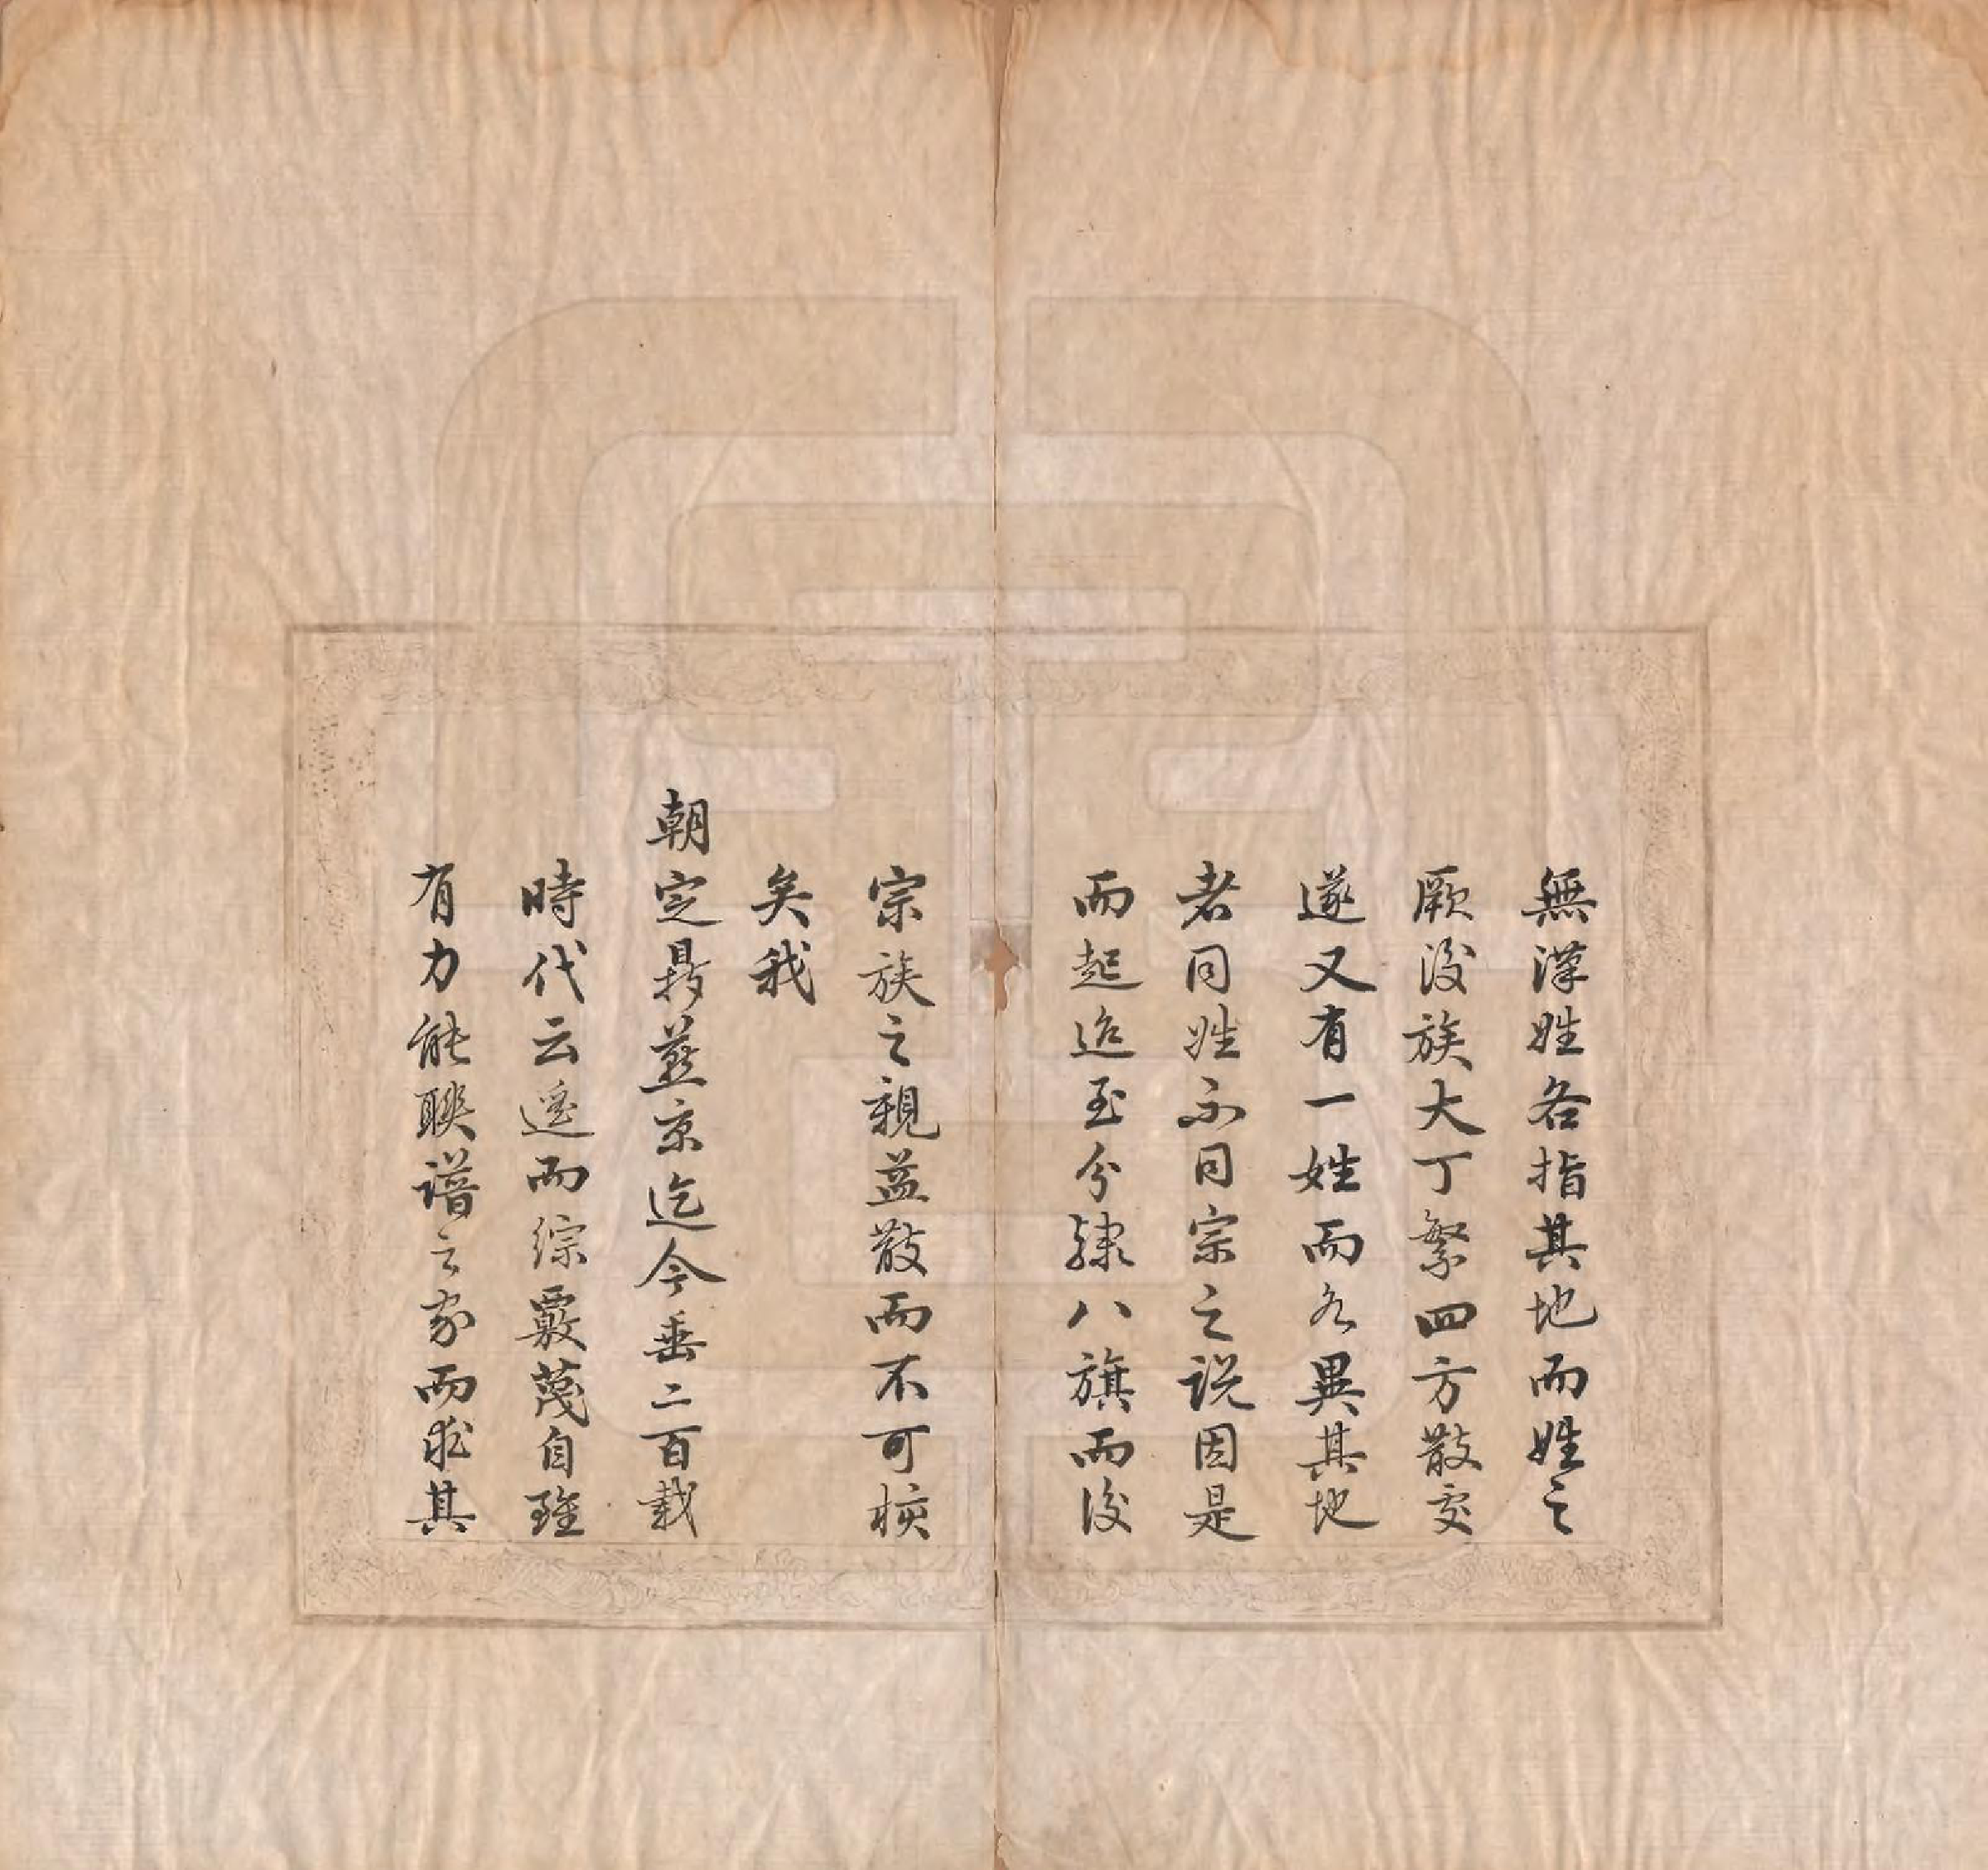 無漢姓各指其地而姓之
厥後族大丁繁四方散處
遂又有一姓而各異其地
者同姓不同宗之說因是
而起迨至分隸八旗而後
宗族之親益散而不可核
矣我
朝定鼎燕京迄今垂二百載
時代云遥而綜覈蔑自雖
有力能聯譜之家而求其